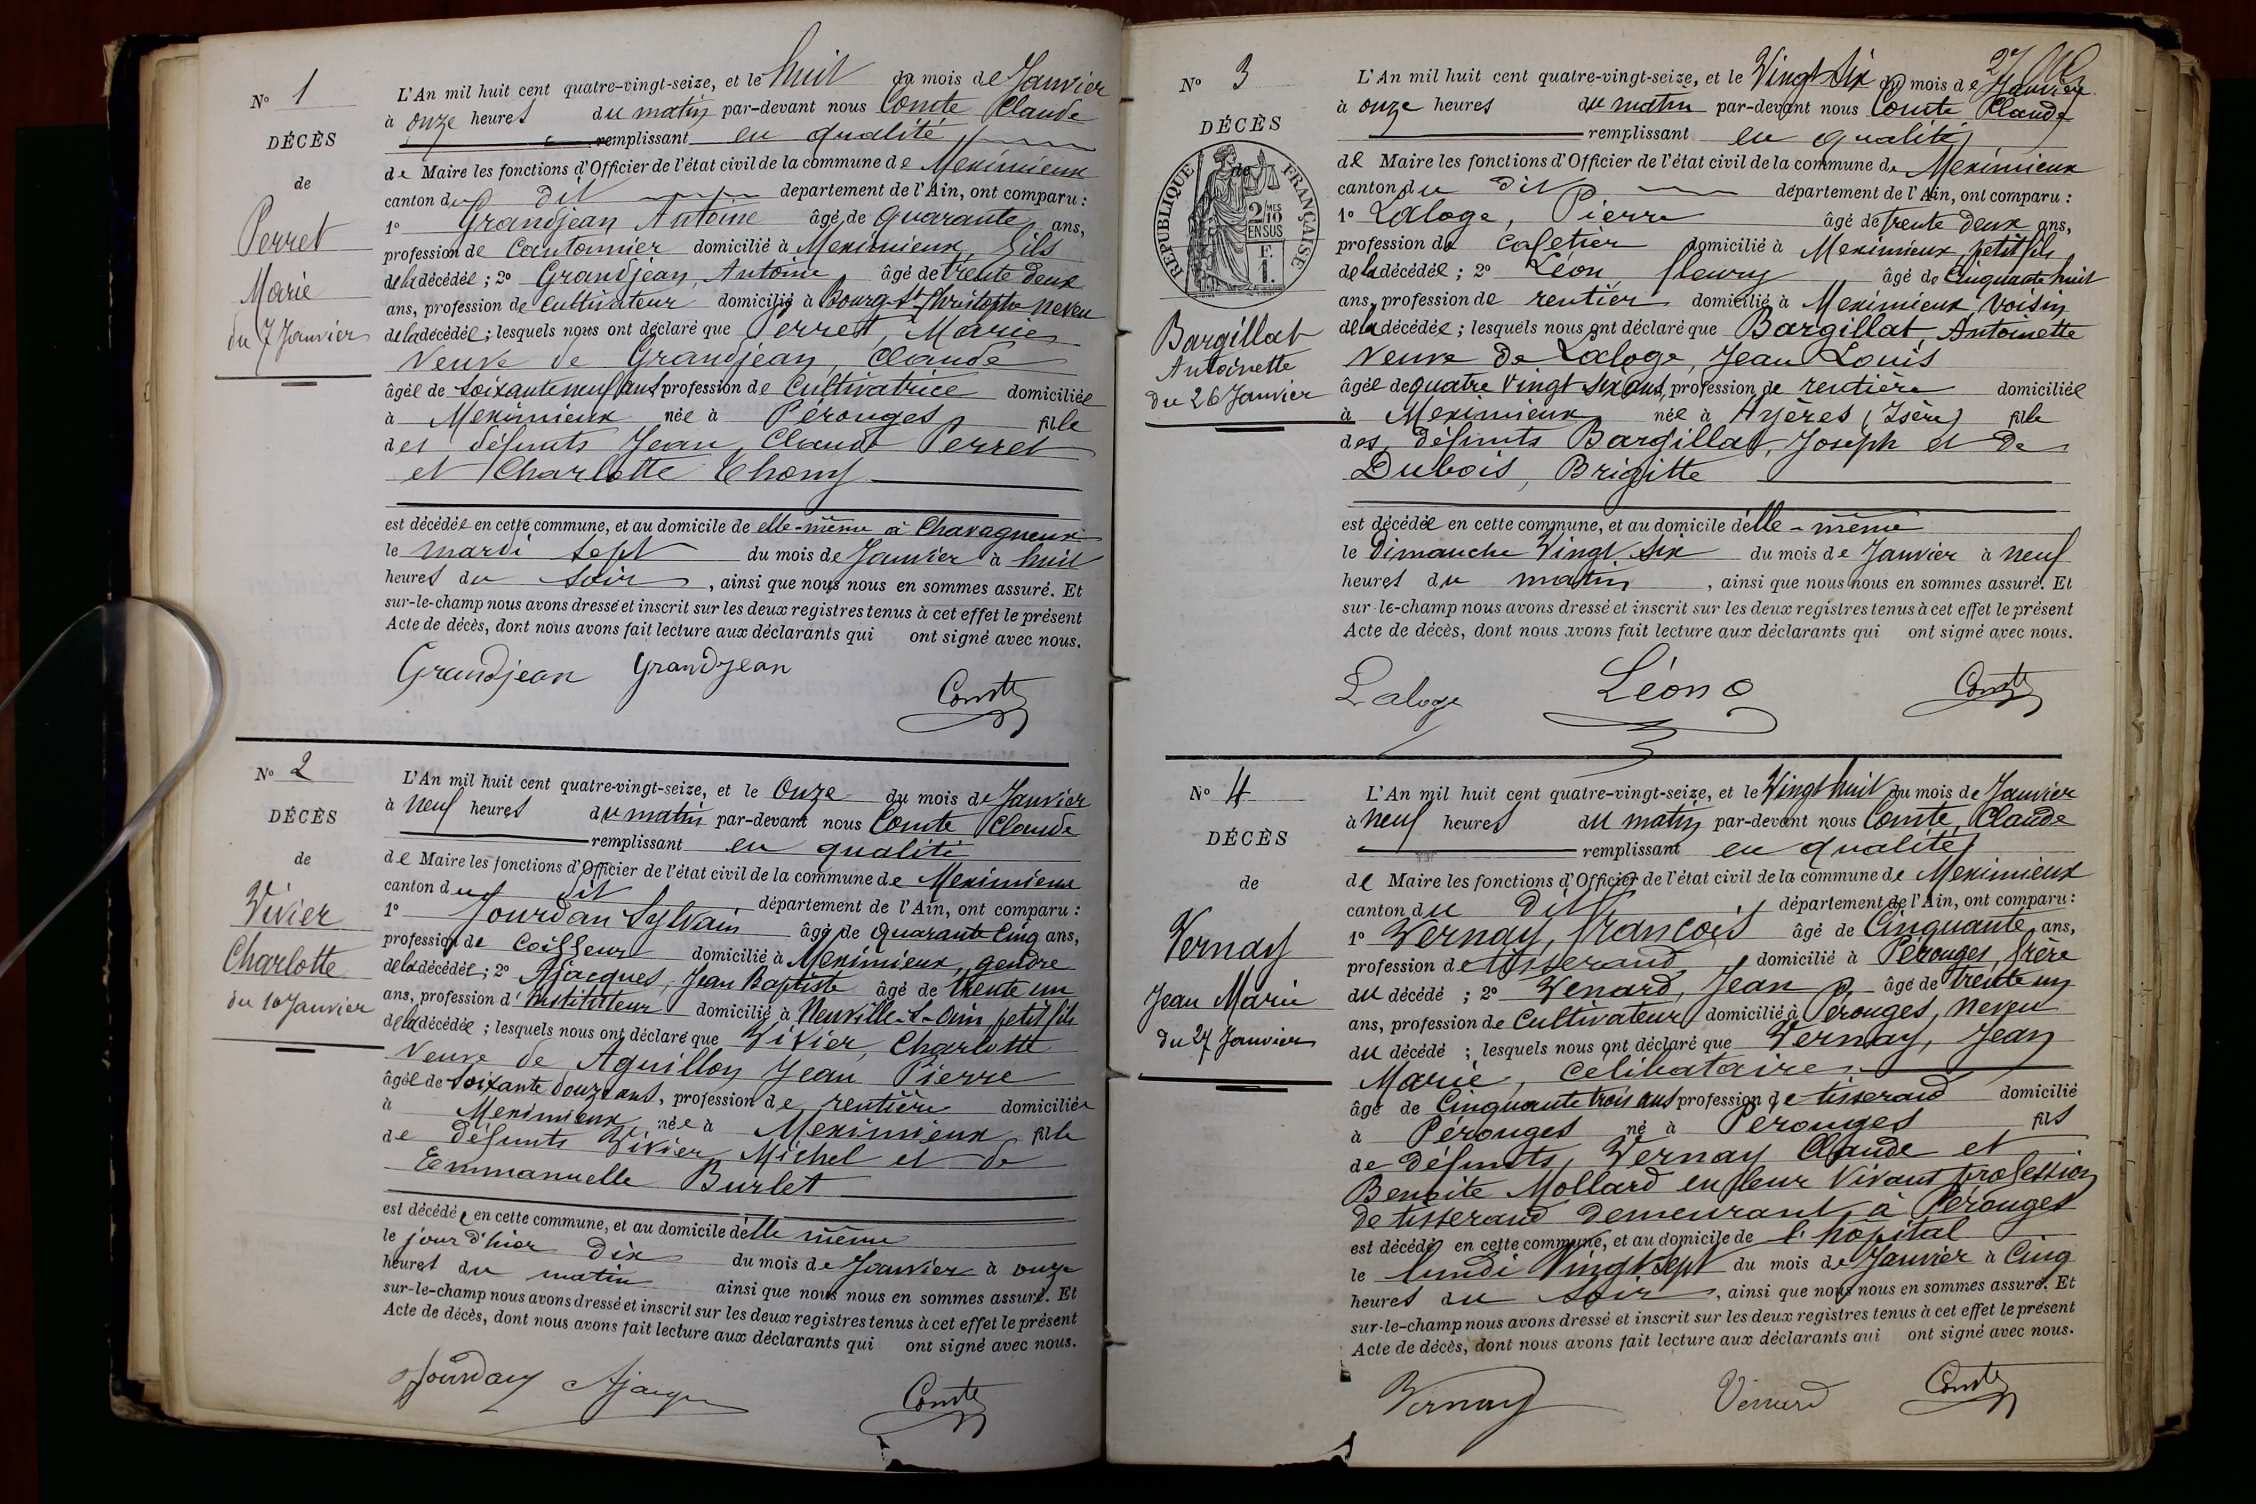 N° 1
DÉCÈS
de
Perret
Marie
du 7 Janvier
L'An mil huit cent quatre-vingt-seize, et le huit du mois de Janvier
à onze heures du matin par-devant nous Comte Claude
remplissant en qualité
de Maire les fonctions d'Officier de l'état civil de la commune de Meximieux
canton du dit département de l'Ain, ont comparu :
1° Grandjean Antoine âgé de quarante ans,
profession de Cantonnier domicilié à Meximieux, fils
de la décédée ; 2° Grandjean, Antoine âgé de trente deux
ans, profession de cultivateur domicilié à Bourg-St-Christophe neveu
de la décédée ; lesquels nous ont déclaré que Perret, Marie
Veuve de Grandjean, Claude
âgée de soixante neuf ans profession de Cultivatrice domiciliée
à Meximieux née à Pérouges fille
des défunts Jean Claude Perret
et Charlotte Thomy
est décédée en cette commune, et au domicile de elle-même à Chavagneux
le mardi sept du mois de Janvier à huit
heures du soir, ainsi que nous nous en sommes assuré. Et
sur-le-champ nous avons dressé et inscrit sur les deux registres tenus à cet effet le présent
Acte de décès, dont nous avons fait lecture aux déclarants qui ont signé avec nous.
Grandjean Grandjean
Comte
N° 2
DÉCÈS
de
Vivier
Charlotte
du 10 Janvier
L'An mil huit cent quatre-vingt-seize, et le Onze du mois de Janvier
à neuf heures du matin par-devant nous Comte Claude
remplissant en qualité
de Maire les fonctions d'Officier de l'état civil de la commune de Meximieux
canton du dit département de l'Ain, ont comparu :
1° Jourdan Sylvain âgé de quarante cinq ans,
profession de Coiffeur domicilié à Meximieux, gendre
de la décédée ; 2° Ajacques, Jean Baptiste âgé de trente un
ans, profession d'instituteur domicilié à Neuville-s-Ain petit fils
de la décédée ; lesquels nous ont déclaré que Vivier, Charlotte
Veuve de Aguillon Jean Pierre
âgée de soixante douze ans, profession de rentière domiciliée
à Meximieux née à Meximieux fille
de défunts Vivier Michel et de
Emmanuelle Burlet
est décédée en cette commune, et au domicile d'elle même
le jour d'hier dix du mois de Janvier à onze
heures du matin ainsi que nous nous en sommes assuré. Et
sur-le-champ nous avons dressé et inscrit sur les deux registres tenus à cet effet le présent
Acte de décès, dont nous avons fait lecture aux déclarants qui ont signé avec nous.
Jourdan Ajacques
Comte
N° 3
DÉCÈS
de
RÉPUBLIQUE FRANÇAISE
2/10 MES
EN SUS
F.
1.
Bargillat
Antoinette
du 26 Janvier
L'An mil huit cent quatre-vingt-seize, et le Vingt six du mois de Janvier
à onze heures du matin par-devant nous Comte Claude
remplissant en qualité
de Maire les fonctions d'Officier de l'état civil de la commune de Meximieux
canton du dit département de l'Ain, ont comparu :
1° Laloge, Pierre âgé de trente deux ans,
profession de cafetier domicilié à Meximieux petit fils
de la décédée ; 2° Léon fleury âgé de Cinquante huit
ans, profession de rentier domicilié à Meximieux Voisin
de la décédée ; lesquels nous ont déclaré que Bargillat, Antoinette
Veuve de Laloge, Jean Louis
âgée de quatre Vingt six ans, profession de rentière domiciliée
à Meximieux née à Anjères (Isère) fille
des défunts Bargillat, Joseph et de
Dubois, Brigitte
est décédée en cette commune, et au domicile d'elle-même
le Dimanche Vingt six du mois de Janvier à neuf
heures du matin, ainsi que nous nous en sommes assuré. Et
sur-le-champ nous avons dressé et inscrit sur les deux registres tenus à cet effet le présent
Acte de décès, dont nous avons fait lecture aux déclarants qui ont signé avec nous.
Laloge Léon Comte
N° 4
DÉCÈS
de
Vernay
Jean Marie
du 27 Janvier
L'An mil huit cent quatre-vingt-seize, et le Vingt huit du mois de Janvier
à neuf heures du matin par-devant nous Comte, Claude
remplissant en qualité
de Maire les fonctions d'Officier de l'état civil de la commune de Meximieux
canton du dit département de l'Ain, ont comparu :
1° Vernay, françois âgé de Cinquante ans,
profession de tisserand domicilié à Pérouges, frère
du décédé ; 2° Venard, Jean P. âgé de trente un
ans, profession de Cultivateur domicilié à Pérouges, neveu
du décédé ; lesquels nous ont déclaré que Vernay, Jean
Marie, célibataire
âgé de Cinquante trois ans profession de tisserand domicilié
à Pérouges né à Pérouges fils
de défunts Vernay Claude et
Benoite Mollard en leur Vivant profession
de tisserand demeurant à Pérouges
est décédé en cette commune, et au domicile de l'hôpital
le lundi Vingt sept du mois de Janvier à Cinq
heures du soir, ainsi que nous nous en sommes assuré. Et
sur-le-champ nous avons dressé et inscrit sur les deux registres tenus à cet effet le présent
Acte de décès, dont nous avons fait lecture aux déclarants qui ont signé avec nous.
Vernay Venard Comte